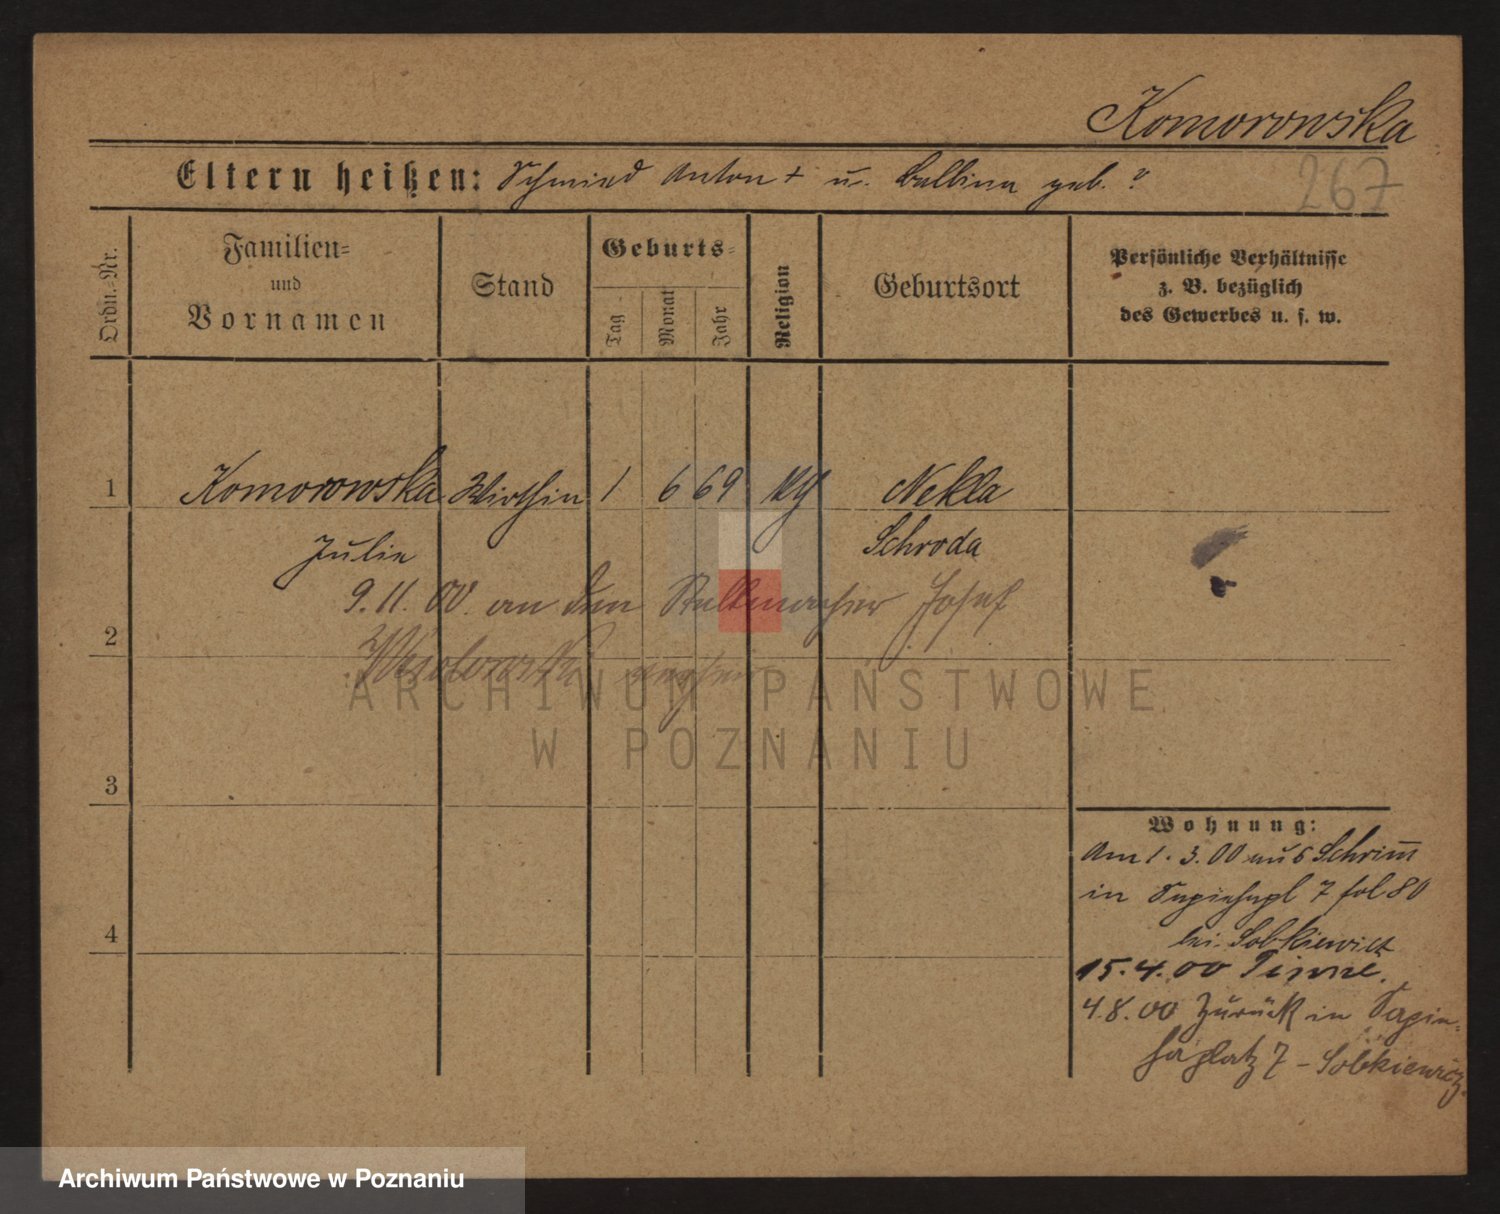 Komorowska
267
Eltern heißen: Schmied Anton + u. Balbina geb. ?
Ordn.-Nr.
Familien- und Vornamen
Stand
Geburts-
Tag
Monat
Jahr
Religion
Geburtsort
Persönliche Verhältnisse
z. B. bezüglich
des Gewerbes u. s. w.
1 Komorowska Wirthin 1 6 69 Nekla
Julie Schroda
9. 11. 00 an den Stellmacher Josef
2
3
4
Wohnung:
Am 1. 3. 00 aus Schrimm
in Sapiehapl 7 fol 80
bei Sobkiewicz
15. 4. 00 Pinne.
4. 8. 00 Zurück in Sapie-
haplatz 7 - Sobkiewicz.
ARCHIWUM PAŃSTWOWE
W POZNANIU
Archiwum Państwowe w Poznaniu